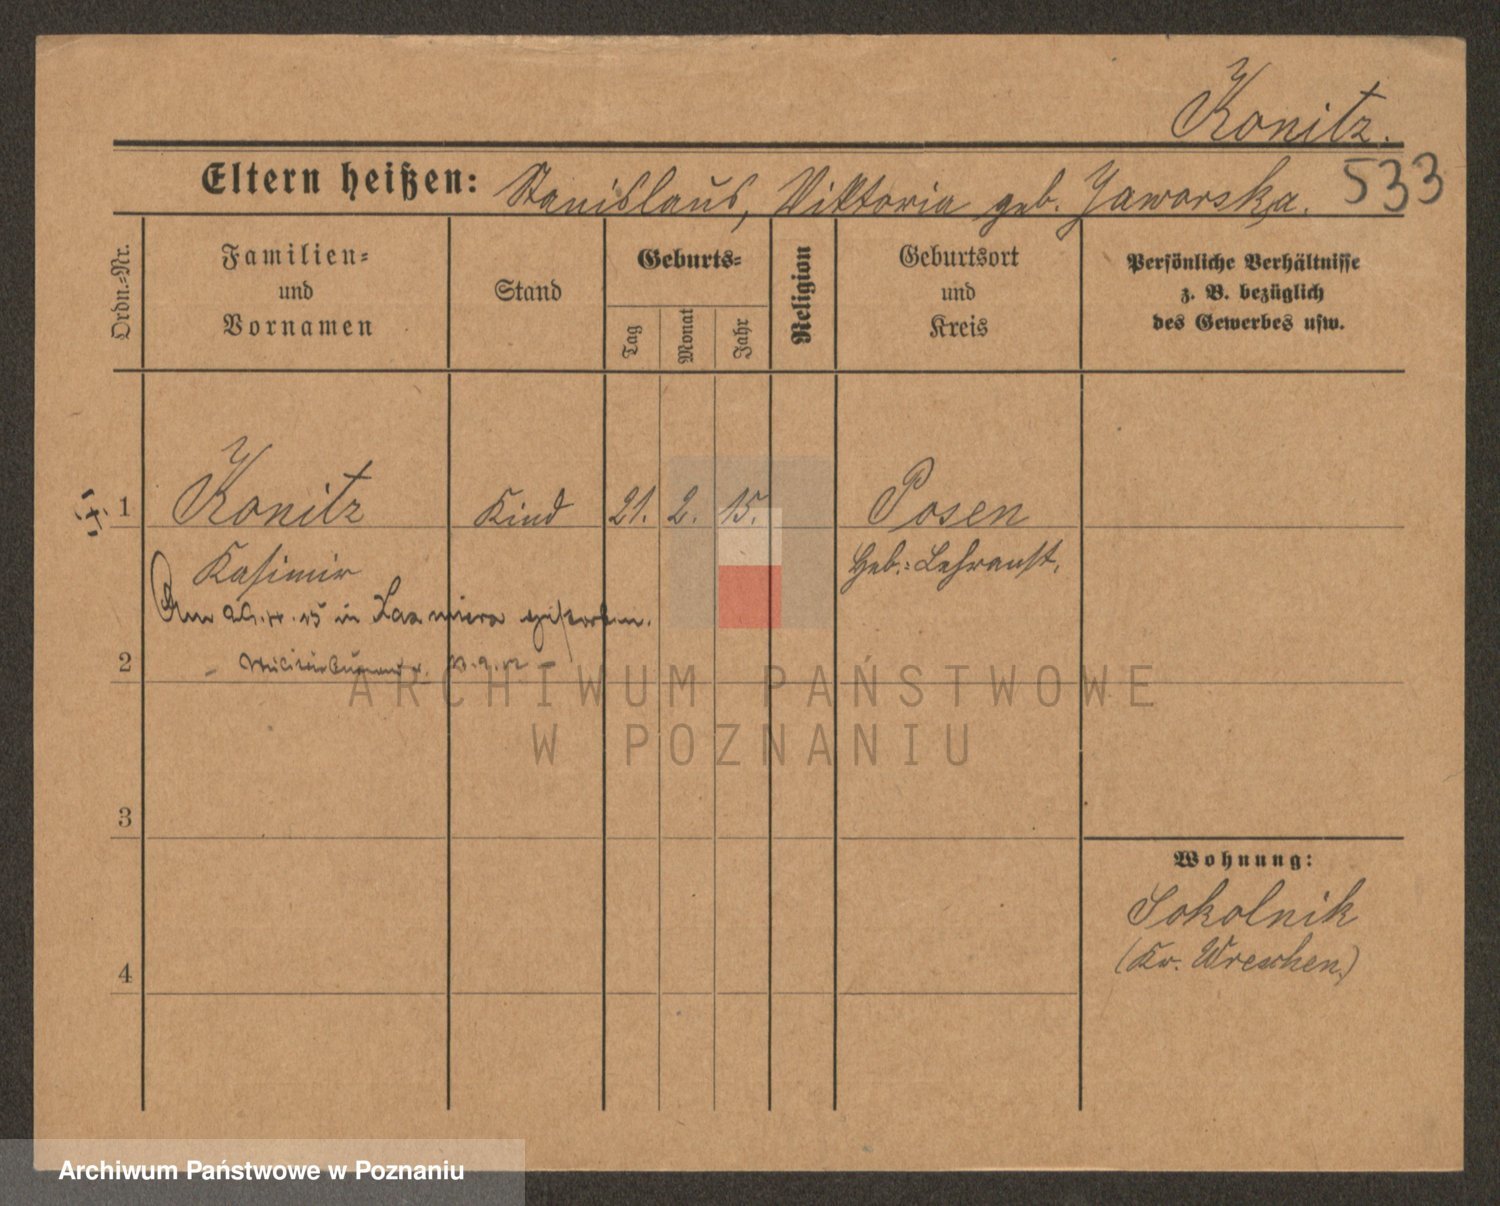 Konitz.
Eltern heißen: Stanislaus, Viktoria geb. Jaworska.
533
Ordn.-Nr.
Familien-
und
Vornamen
Stand
Geburts-
Tag
Monat
Jahr
Religion
Geburtsort
und
Kreis
Persönliche Verhältnisse
z. B. bezüglich
des Gewerbes usw.
1 Konitz Kind 21. 2. 15. Posen
Kasimir Heb.-Lehranst.
Am 15 in gestorben.
2
3
4
Wohnung:
Sokolnik
(Kr. Wreschen)
ARCHIWUM PAŃSTWOWE
W POZNANIU
Archiwum Państwowe w Poznaniu